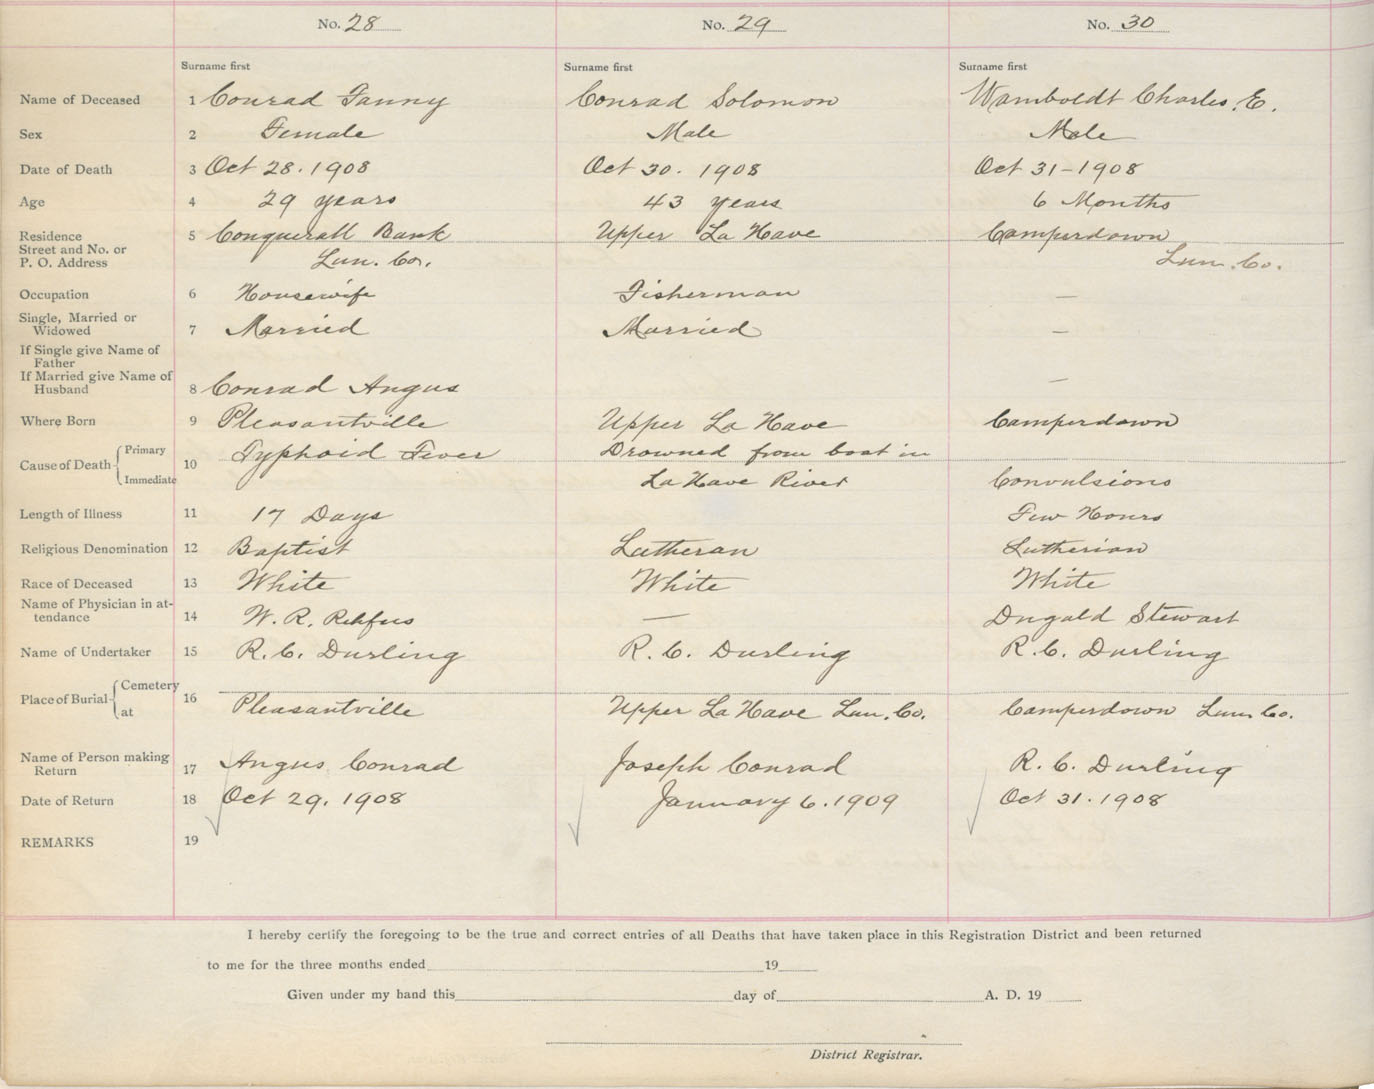 No. 28 No. 29 No. 30
Surname first Surname first Surname first
Name of Deceased 1 Conrad Fanny Conrad Solomon Wamboldt Charles. E.
Sex 2 Female Male Male
Date of Death 3 Oct 28. 1908 Oct 30. 1908 Oct 31-1908
Age 4 29 years 43 years 6 Months
Residence 5 Conquerall Bank Upper La Have Camperdown
Street and No. or
P. O. Address Lun. Co. Lun. Co.
Occupation 6 Housewife Fisherman —
Single, Married or
Widowed 7 Married Married —
If Single give Name of
Father
If Married give Name of
Husband 8 Conrad Angus —
Where Born 9 Pleasantville Upper La Have Camperdown
Primary Typhoid Fever Drowned from boat in
Cause of Death 10
Immediate La Have River Convulsions
Length of Illness 11 17 Days Few Hours
Religious Denomination 12 Baptist Lutheran Lutherian
Race of Deceased 13 White White White
Name of Physician in at-
tendance 14 W. R. Rehfus — Dugald Stewart
Name of Undertaker 15 R. C. Durling R. C. Durling R. C. Durling
Cemetery
Place of Burial 16
at Pleasantville Upper La Have Lun. Co. Camperdown Lun. Co.
Name of Person making
Return 17 Angus Conrad Joseph Conrad R. C. Durling
Date of Return 18 Oct 29. 1908 January 6. 1909 Oct 31. 1908
REMARKS 19
I hereby certify the foregoing to be the true and correct entries of all Deaths that have taken place in this Registration District and been returned
to me for the three months ended 19
Given under my hand this day of A. D. 19
District Registrar.